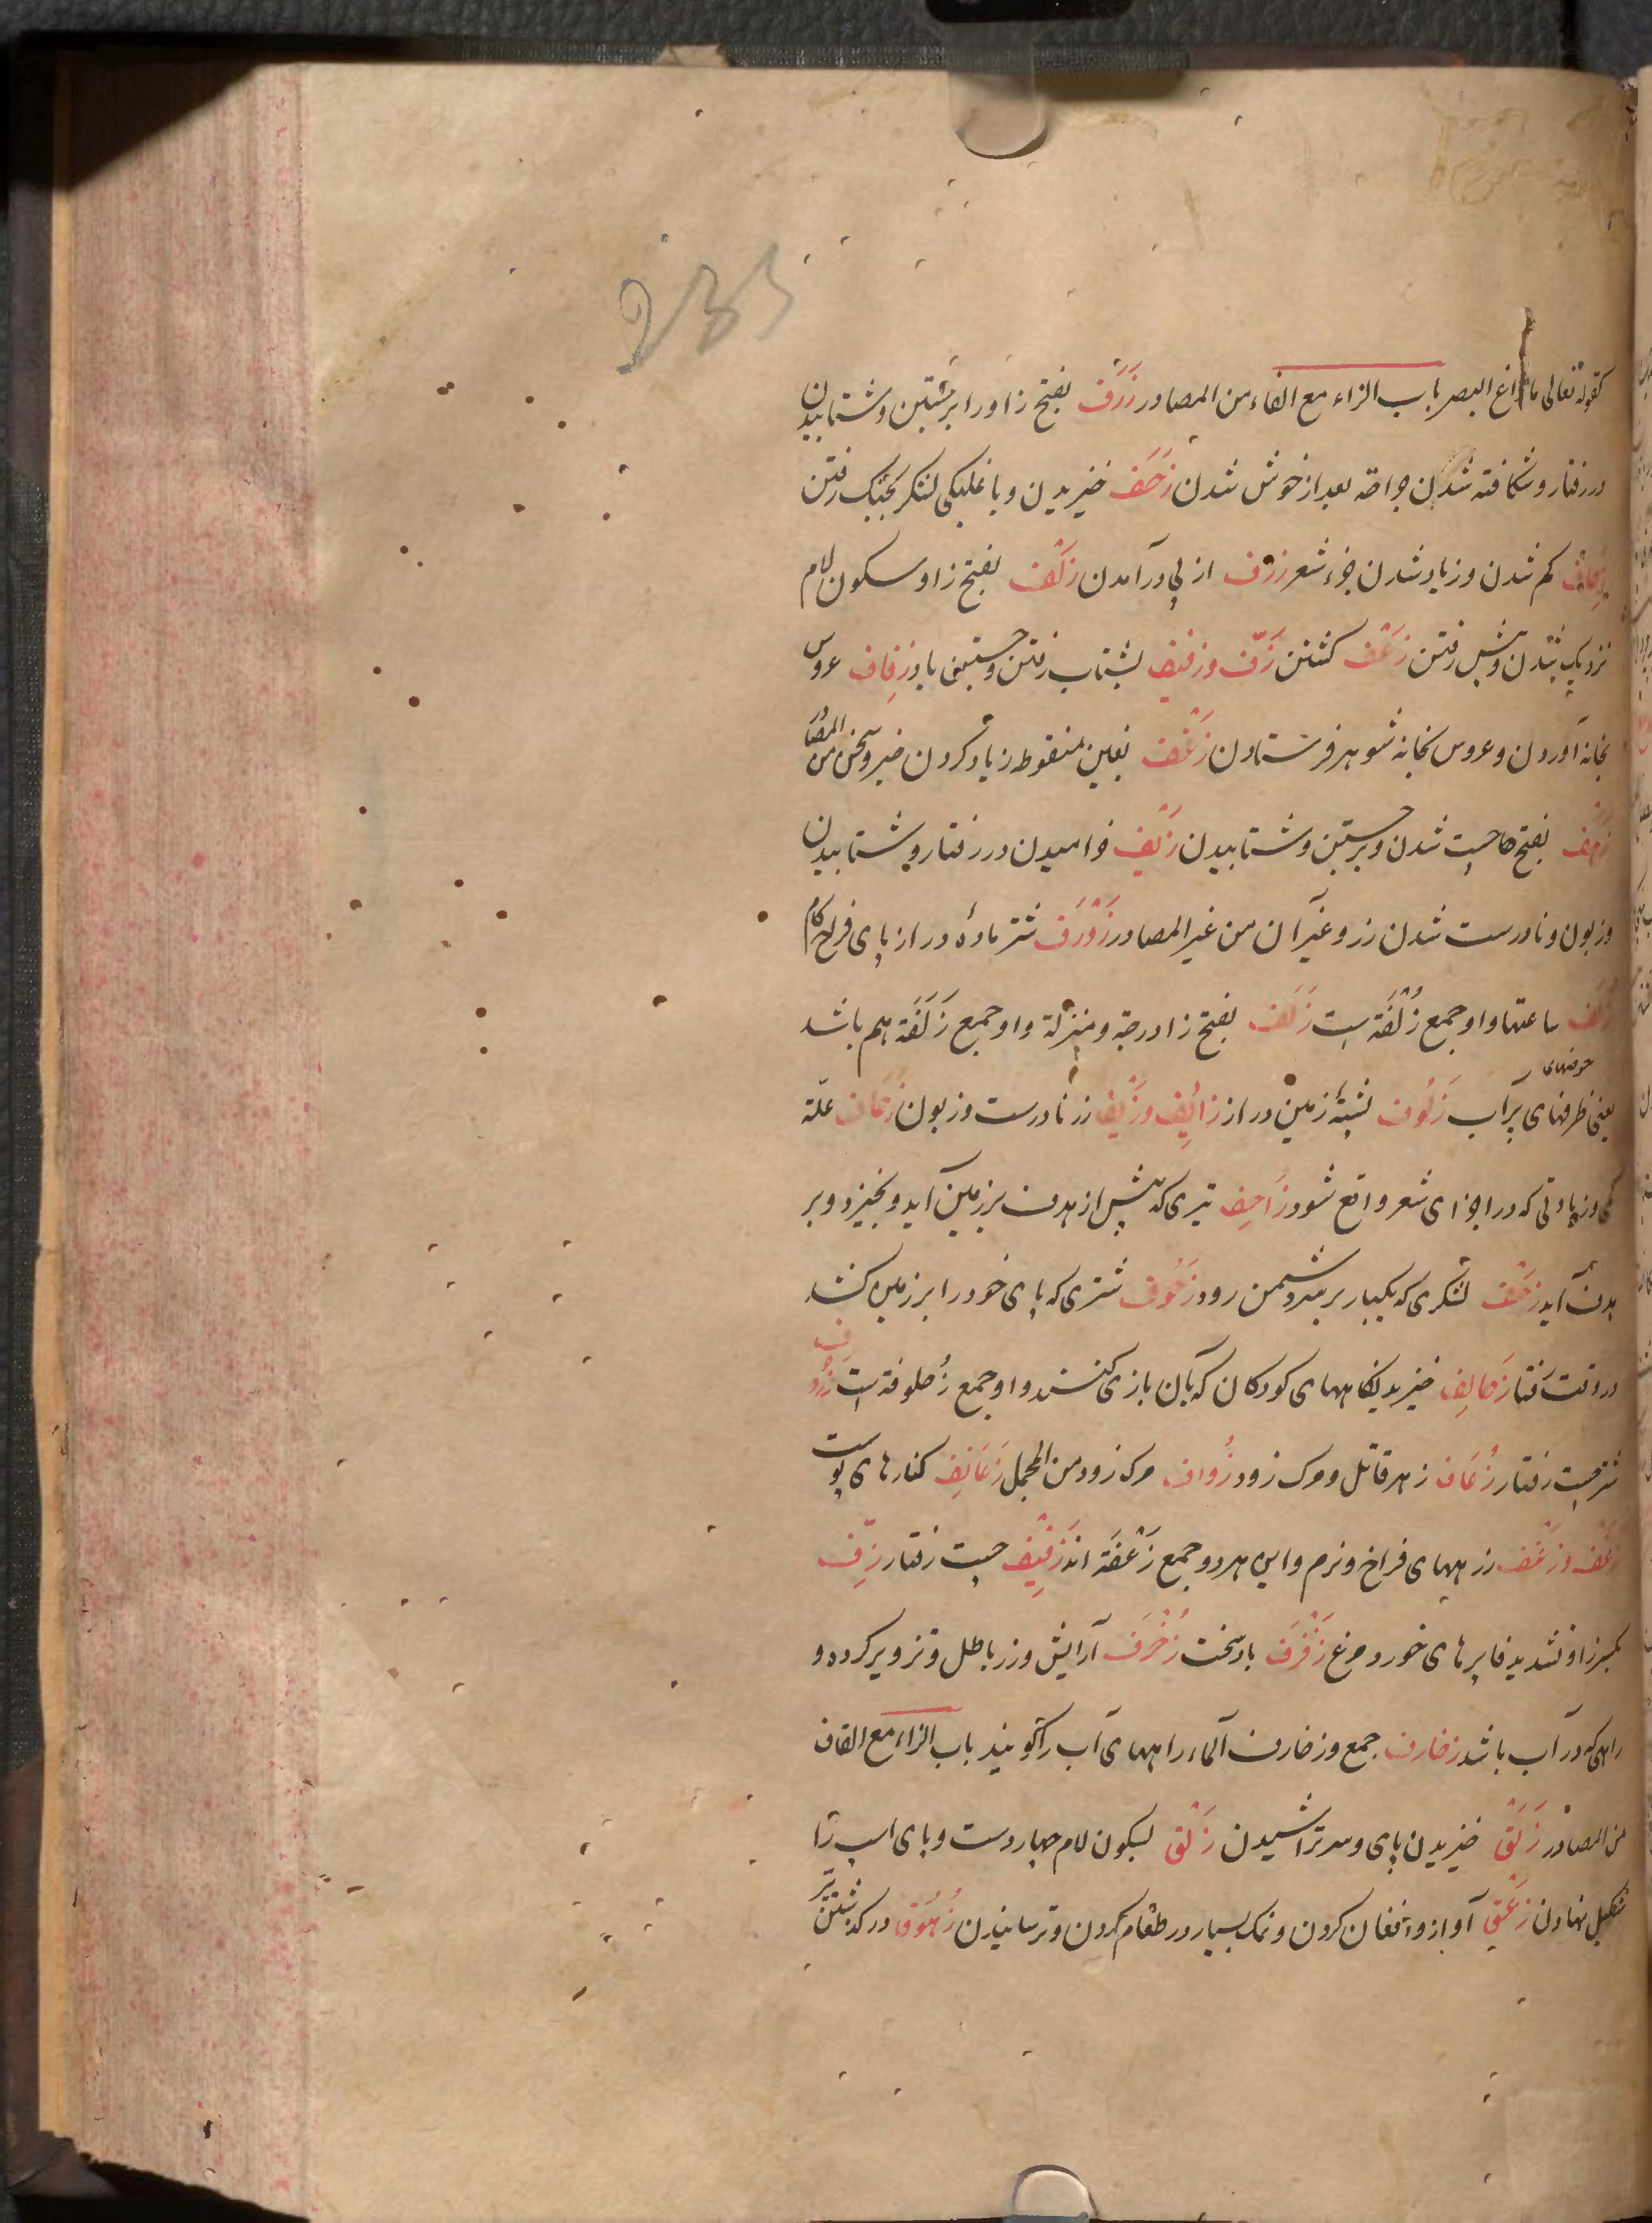 235
كقوله تعالى ما زاغ البصر باب الزاء مع الفاء من المصادر زَرَف بفتح زا و را برجستن و شتابیدن
در رفتار و شکافته شدن جراحة بعد از خوش شدن زَحَف خیزیدن و با غلبکی لشکر بجنگ رفتن
زِحاف کم شدن و زیاد شدن جزء شعر زرف از پی درآمدن زَلْف بفتح زا و سکون لام
نزدیک شدن و پیش رفتن زَعْف کشتن زَفّ و زفیف بشتاب رفتن و جستن باد زِفاف عروس
بخانه آوردن و عروس بخانه شوهر فرستادن زَغْف بغین منقوطه زیاد کردن خبر و سخن من المصا
زَهَف بفتح ها چست شدن و برجستن و شتابیدن زَیْف خرامیدن در رفتار و شتابیدن
و زبون و نادرست شدن زر و غیر آن من غیر المصادر زَوْرَف شتر مادهٔ دراز پای فراخ کام
زُلَف ساعتها و او جمع زُلْفَة است زَلَف بفتح زا درجة و منزلة و او جمع زَلَفَة هم باشد
حوضهای
یعنی ظرفهای پر آب زَلُوف پشتهٔ زمین دراز زائِف و زَیْف زر نادرست و زبون زحاف علّة
کمی و زیادتی که در اجزای شعر واقع شود زَاحِف تیری که پیش از هدف بر زمین آید و بخیزد و بر
هدف آید زَحْف لشکری که یکبار بر سر دشمن رود زَحُوف شتری که پای خود را بر زمین کشد
در وقت رفتار زَحالِف خیزیدنگاههای کودکان که بآن بازی کنند و او جمع زُحلوفة است زَرُوف
شتر چست رفتار زُعَاف زهر قاتل و مرک زود زُواف مرک زود من المجمل زَعَانِف کنارهای پوست
زَغْف و زَغَف زرههای فراخ و نرم و این هر دو جمع زَغْفَة اند زَفِیْف چست رفتار زِفّ
بکسر زا و تشدید فا پرهای خورد مرغ زَفْزَف باد سخت زُخْرَف آرایش و زر باطل و تزویر کرده و
راهی که در آب باشد زخارف جمع و زخارف الماء راههای آب را گویند باب الزاء مع القاف
من المصادر زَلَق خیزیدن پای و سر تراشیدن زَلْق بسکون لام چهار دست و پای اسب را
شکیل نهادن زَعْق آواز و افغان کردن و نمک بسیار در طعام کردن و ترسانیدن زُهُوق در گذشتن تیر